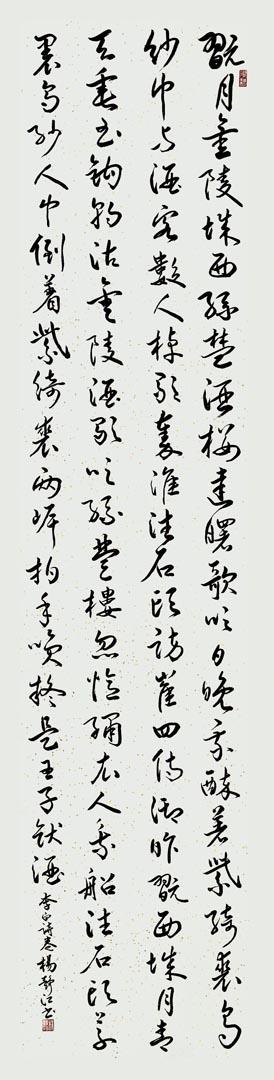 翫月金陵城西孫楚酒樓達曙歌吹日晚乘醉著紫綺裘烏
紗巾与酒客數人棹歌秦淮往石頭訪崔四侍御昨翫西城月青
天垂玉鉤朝沽金陵酒歌吹孫楚樓忽憶繡衣人乘船往石頭草
裹烏紗人巾倒着紫綺裘兩岸拍手笑疑是王子猷酒
李白詩卷楊静江书